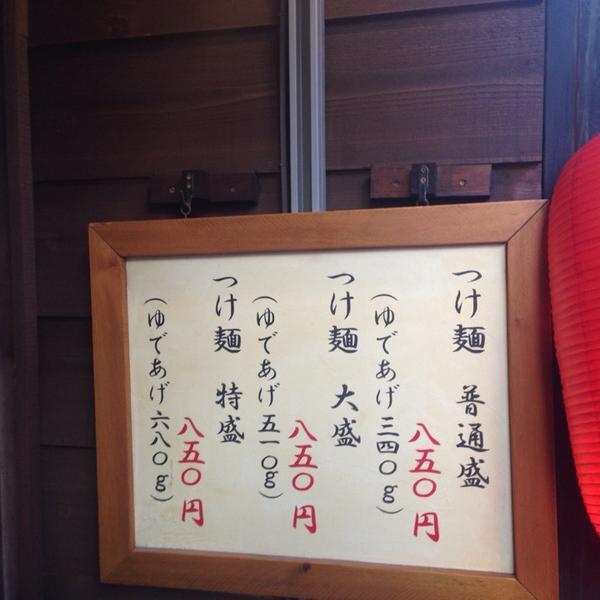 つけ麺 普通盛
八五〇円
(ゆであげ三四〇g)
つけ麺 大盛
八五〇円
(ゆであげ五一〇g)
つけ麺 特盛
八五〇円
(ゆであげ六八〇g)